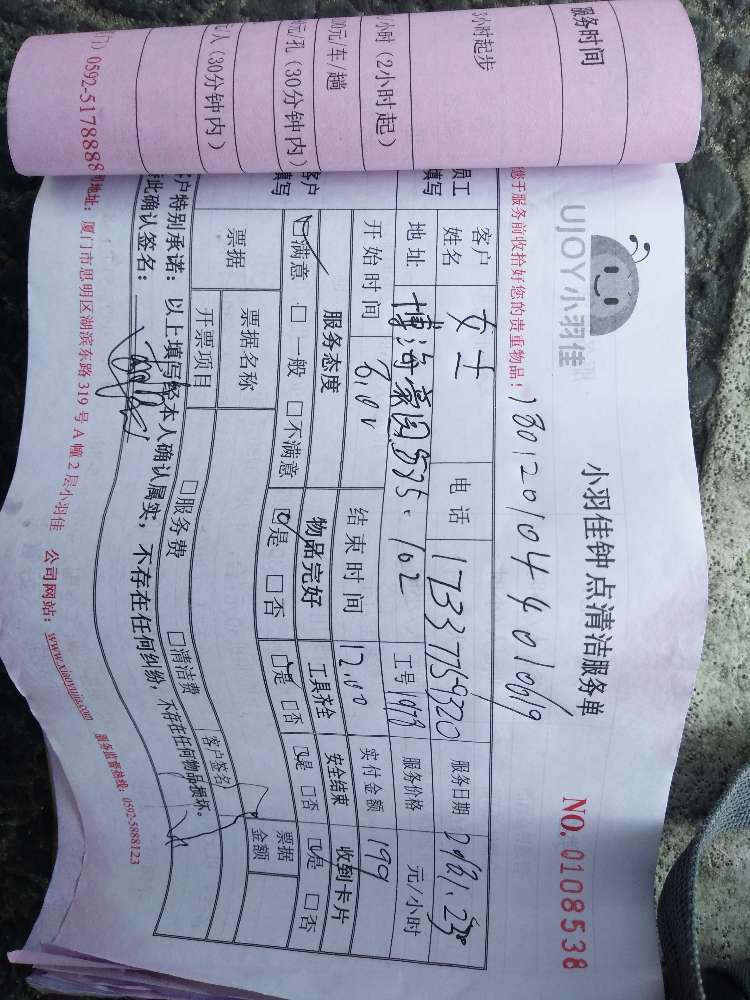 服务时间
小时起步
小时（2小时起）
00元/车/趟
元/孔（30分钟内）
元/人（30分钟内）
0592-5178888
UJOY小羽佳
小羽佳钟点清洁服务单
NO. 0108538
您于服务前收拾好您的贵重物品！
员工填写
客户姓名 女士 电话 17337759320 服务日期
地址 博海豪园 535-102 工号 1978 服务价格 元/小时
开始时间 结束时间 12.00 实付金额 199
客户填写
服务态度 物品完好 工具齐全 安全结束 收到卡片
☑满意 □一般 □不满意 ☑是 □否 ☑是 □否 ☑是 □否 ☑是 □否
票据 票据名称 票据金额
开票项目 □服务费 □清洁费 客户签名
客户特别承诺：以上填写经本人确认属实，不存在任何纠纷，不存在任何物品损坏。
此确认签名：
地址：厦门市思明区湖滨东路319号A幢2层小羽佳 公司网站：www.xiaoyujia.com 服务监督热线：0592-5888123